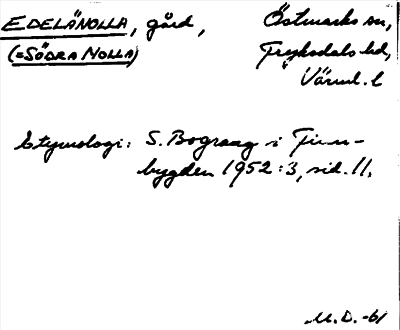 EDELÄNOLLA, gård, Östmarks sn,
(=SÖDRA NOLLA) Fryksdals hd,
Värml. l
Etymologi: S. Bograng i Finn-
bygden 1952:3, sid. 11.
M.D. -61